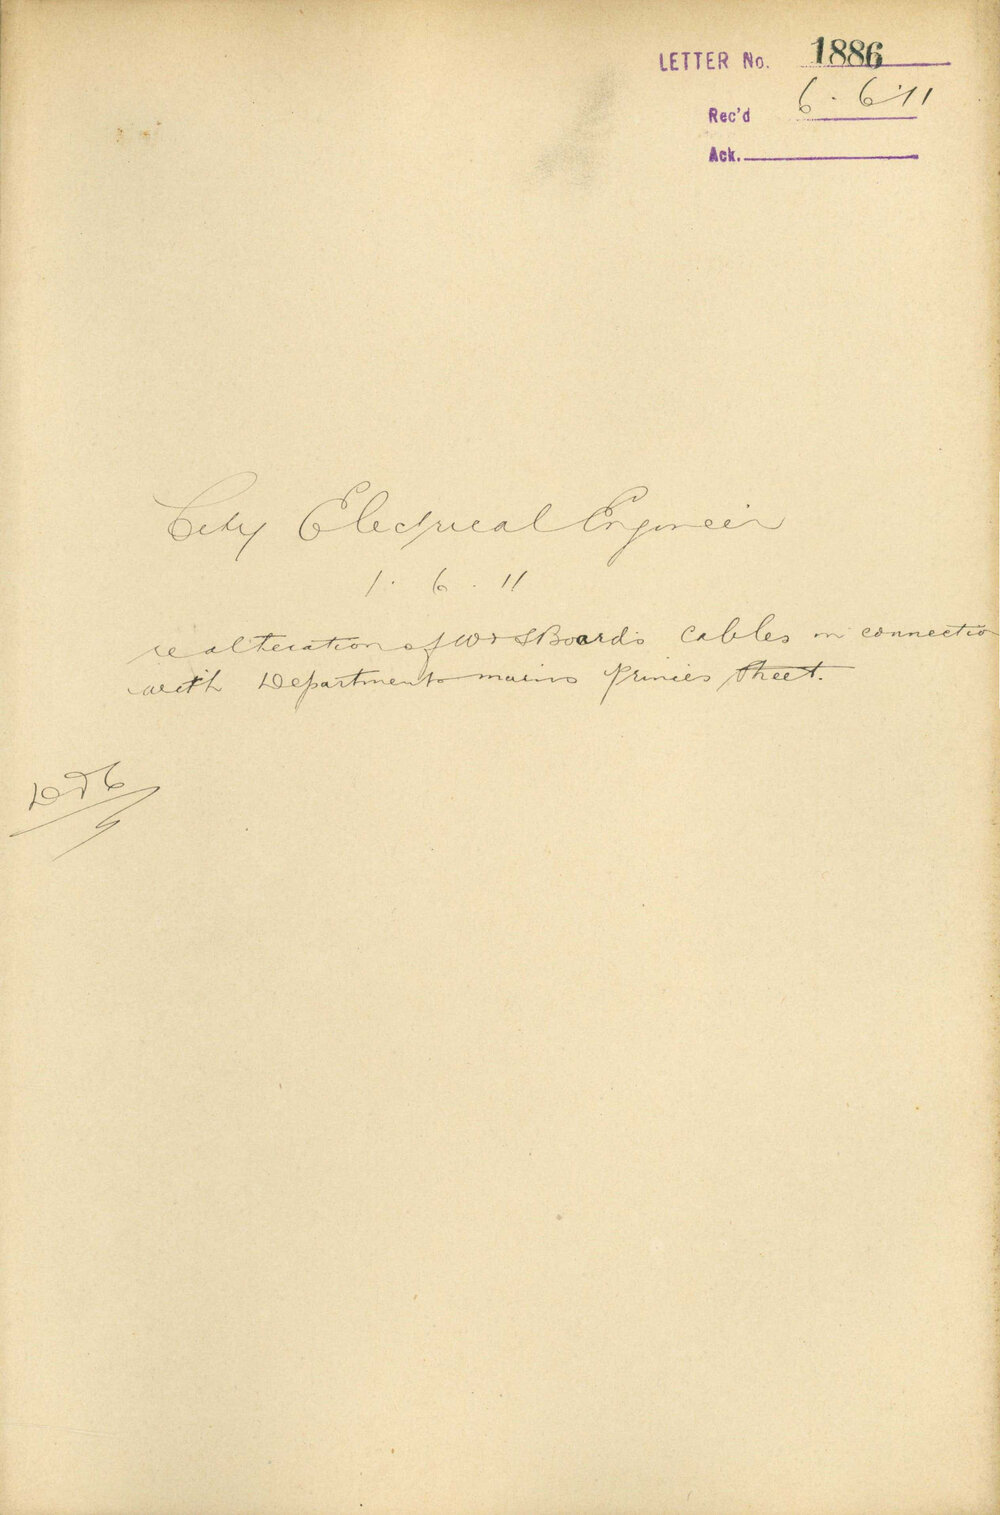 LETTER No. 1886
Rec'd 6.6.11
Ack.
City Electrical Engineer
1.6.11
re alteration of W & S Board's cables in connectio
with Departments mains Princes Street.